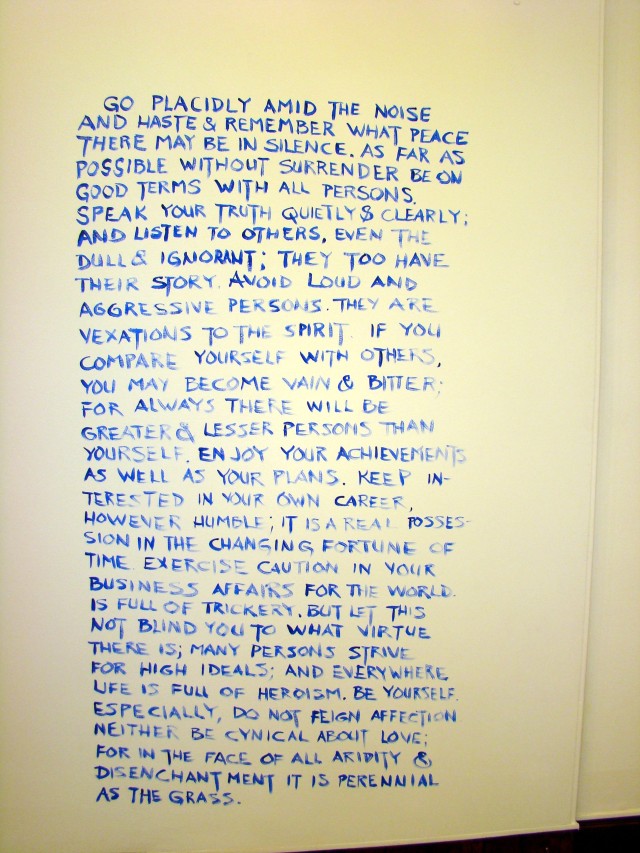 GO PLACIDLY AMID THE NOISE
AND HASTE & REMEMBER WHAT PEACE
THERE MAY BE IN SILENCE. AS FAR AS
POSSIBLE WITHOUT SURRENDER BE ON
GOOD TERMS WITH ALL PERSONS.
SPEAK YOUR TRUTH QUIETLY & CLEARLY;
AND LISTEN TO OTHERS, EVEN THE
DULL & IGNORANT; THEY TOO HAVE
THEIR STORY. AVOID LOUD AND
AGGRESSIVE PERSONS. THEY ARE
VEXATIONS TO THE SPIRIT. IF YOU
COMPARE YOURSELF WITH OTHERS,
YOU MAY BECOME VAIN & BITTER;
FOR ALWAYS THERE WILL BE
GREATER & LESSER PERSONS THAN
YOURSELF. ENJOY YOUR ACHIEVEMENTS
AS WELL AS YOUR PLANS. KEEP IN-
TERESTED IN YOUR OWN CAREER,
HOWEVER HUMBLE; IT IS A REAL POSSES-
SION IN THE CHANGING FORTUNE OF
TIME. EXERCISE CAUTION IN YOUR
BUSINESS AFFAIRS FOR THE WORLD.
IS FULL OF TRICKERY. BUT LET THIS
NOT BLIND YOU TO WHAT VIRTUE
THERE IS; MANY PERSONS STRIVE
FOR HIGH IDEALS; AND EVERYWHERE
LIFE IS FULL OF HEROISM. BE YOURSELF.
ESPECIALLY, DO NOT FEIGN AFFECTION
NEITHER BE CYNICAL ABOUT LOVE;
FOR IN THE FACE OF ALL ARIDITY &
DISENCHANTMENT IT IS PERENNIAL
AS THE GRASS.